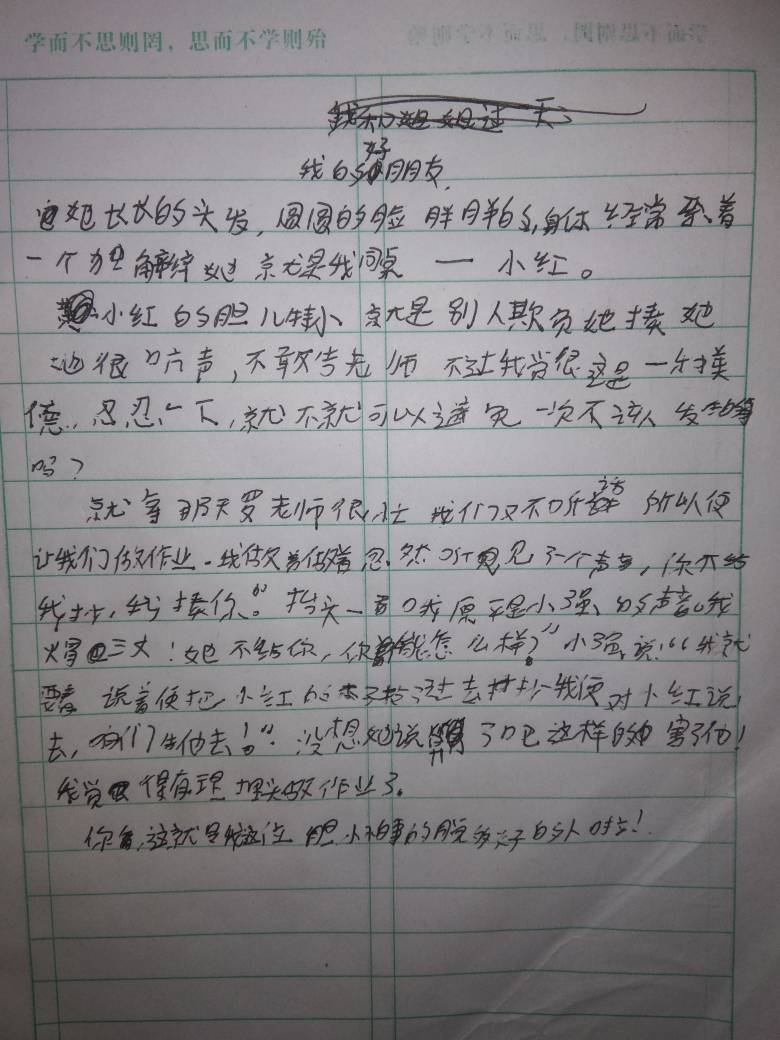 学而不思则罔，思而不学则殆
我和姐姐过一天
我的好朋友
她长长的头发，圆圆的脸 胖胖的身体 经常 着
一个 她 就是我同桌 一 小红。
小红的胆儿特小、就是别人欺负她揍她
也很 声，不敢告老师 不过我觉很这是一 美
德，忍忍一下，就不就可以避免一次不该人发
吗？
就 那天罗老师很忙 我们又不听话 所以便
让我们做作业．我做着做着 忽然听见了一个声音，你不给
我抄，我揍你。”抬头一看 原 是小强的声音 我
火冒三丈！她不给你，你能怎么样？”小强说：“我就
要 说着便把小红的本子抢过去抄 我便对小红说
去，咱们告他去！”没想她说 了吧这样的 害了他！
我觉得有理 埋头做作业了．
你看，这就是我这位 胆小怕事的 的 ！